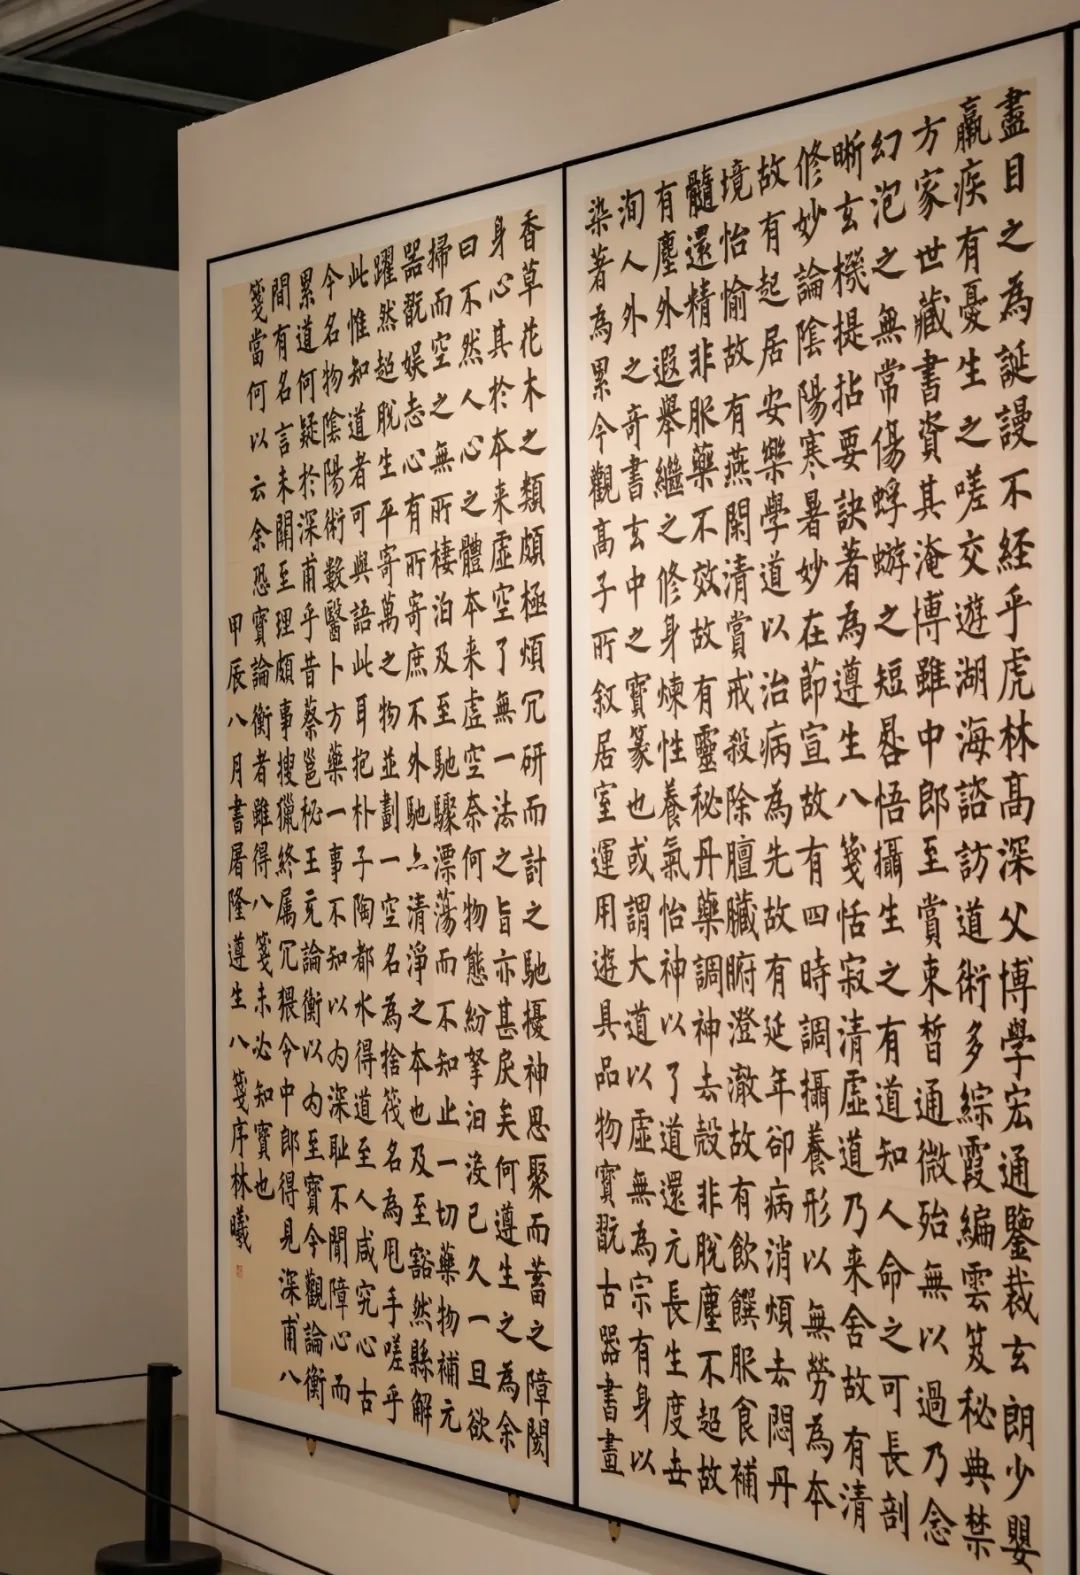 盡目之為誕謾不經乎虎林高深父博學宏通鑒裁玄朗少嬰
羸疾有憂生之嗟交遊湖海諮訪道術多綜霞編雲笈秘典禁
方家世藏書資其淹博雖中郎至賞束晳通微殆無以過乃念
幻泡之無常傷蜉蝣之短晷悟攝生之有道知人命之可長剖
晰玄機提拈要訣著為遵生八箋恬寂清虛道乃来舍故有清
修妙論陰陽寒暑妙在節宣故有四時調攝養形以無勞為本
故有起居安樂學道以治病為先故有延年卻病消煩去悶丹
境怡愉故有燕閑清賞戒殺除膻臟腑澄澈故有飲饌服食補
髓還精非服藥不效故有靈秘丹藥調神去殼非脫塵不超故
有塵外遐舉繼之修身煉性養氣怡神以了道還元長生度世
洵人外之奇書玄中之寶篆也或謂大道以虛無為宗有身以
染著為累今觀高子所敘居室運用遊具品物寶翫古器書畫
香草花木之類頗極煩冗研而討之馳擾神思聚而蓄之障閡
身心其於本来虛空了無一法之旨亦甚戾矣何遵生之為余
曰不然人心之體本来虛空奈何物態紛拏汩沒已久一旦欲
掃而空之無所棲泊及至馳驟漂蕩而不知止一切藥物補元
器翫娛志心有所寄庶不外馳亦清淨之本也及至豁然縣解
躍然超脫生平寄萬之物並劃一空名為捨筏名為甩手嗟乎
此惟知道者可與語此耳抱朴子陶都水得道至人咸究心古
今名物陰陽術數醫卜方藥一事不知以為深恥不聞障心而
累道何疑於深甫乎昔蔡邕秘王充論衡以為至寶今觀論衡
間有名言未關至理頗事搜獵終属冗猥令中郎得見深甫八
箋當何以云余恐寶論衡者雖得八箋未必知寶也
甲辰八月書屠隆遵生八箋序林曦